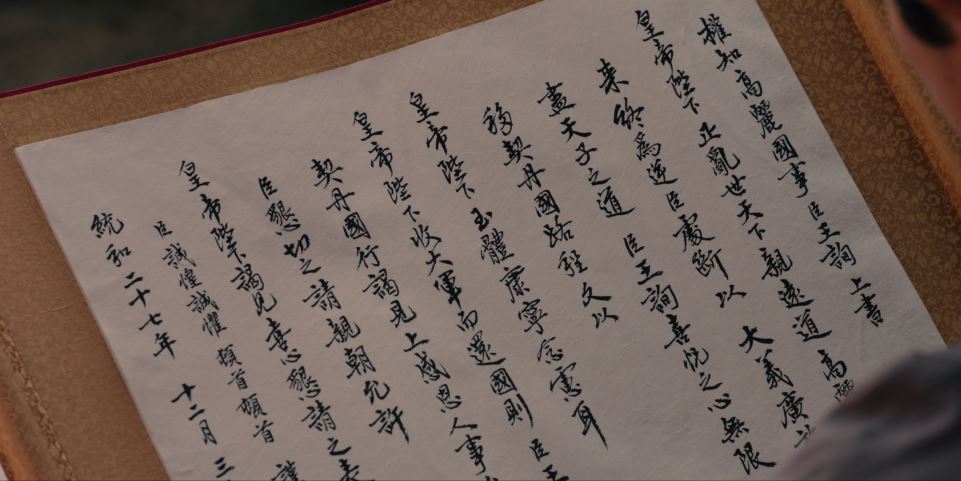 權知高麗國事 臣王詢 上書
皇帝陛下 正亂世天下親遠道 高麗
来 終爲逆臣處断 以 大義廣
盡天子之道 臣王詢喜悅之心無限
移契丹國 文以
皇帝陛下 玉體康寧念慮耳
皇帝陛下收大軍而還國則 臣王
契丹國行謁見上感恩人事
臣懇切之請親朝允許
皇帝陛下謁見喜心懇請之表
臣誠惶誠懼 頓首頓首 謹
統和二十七年 十二月 三